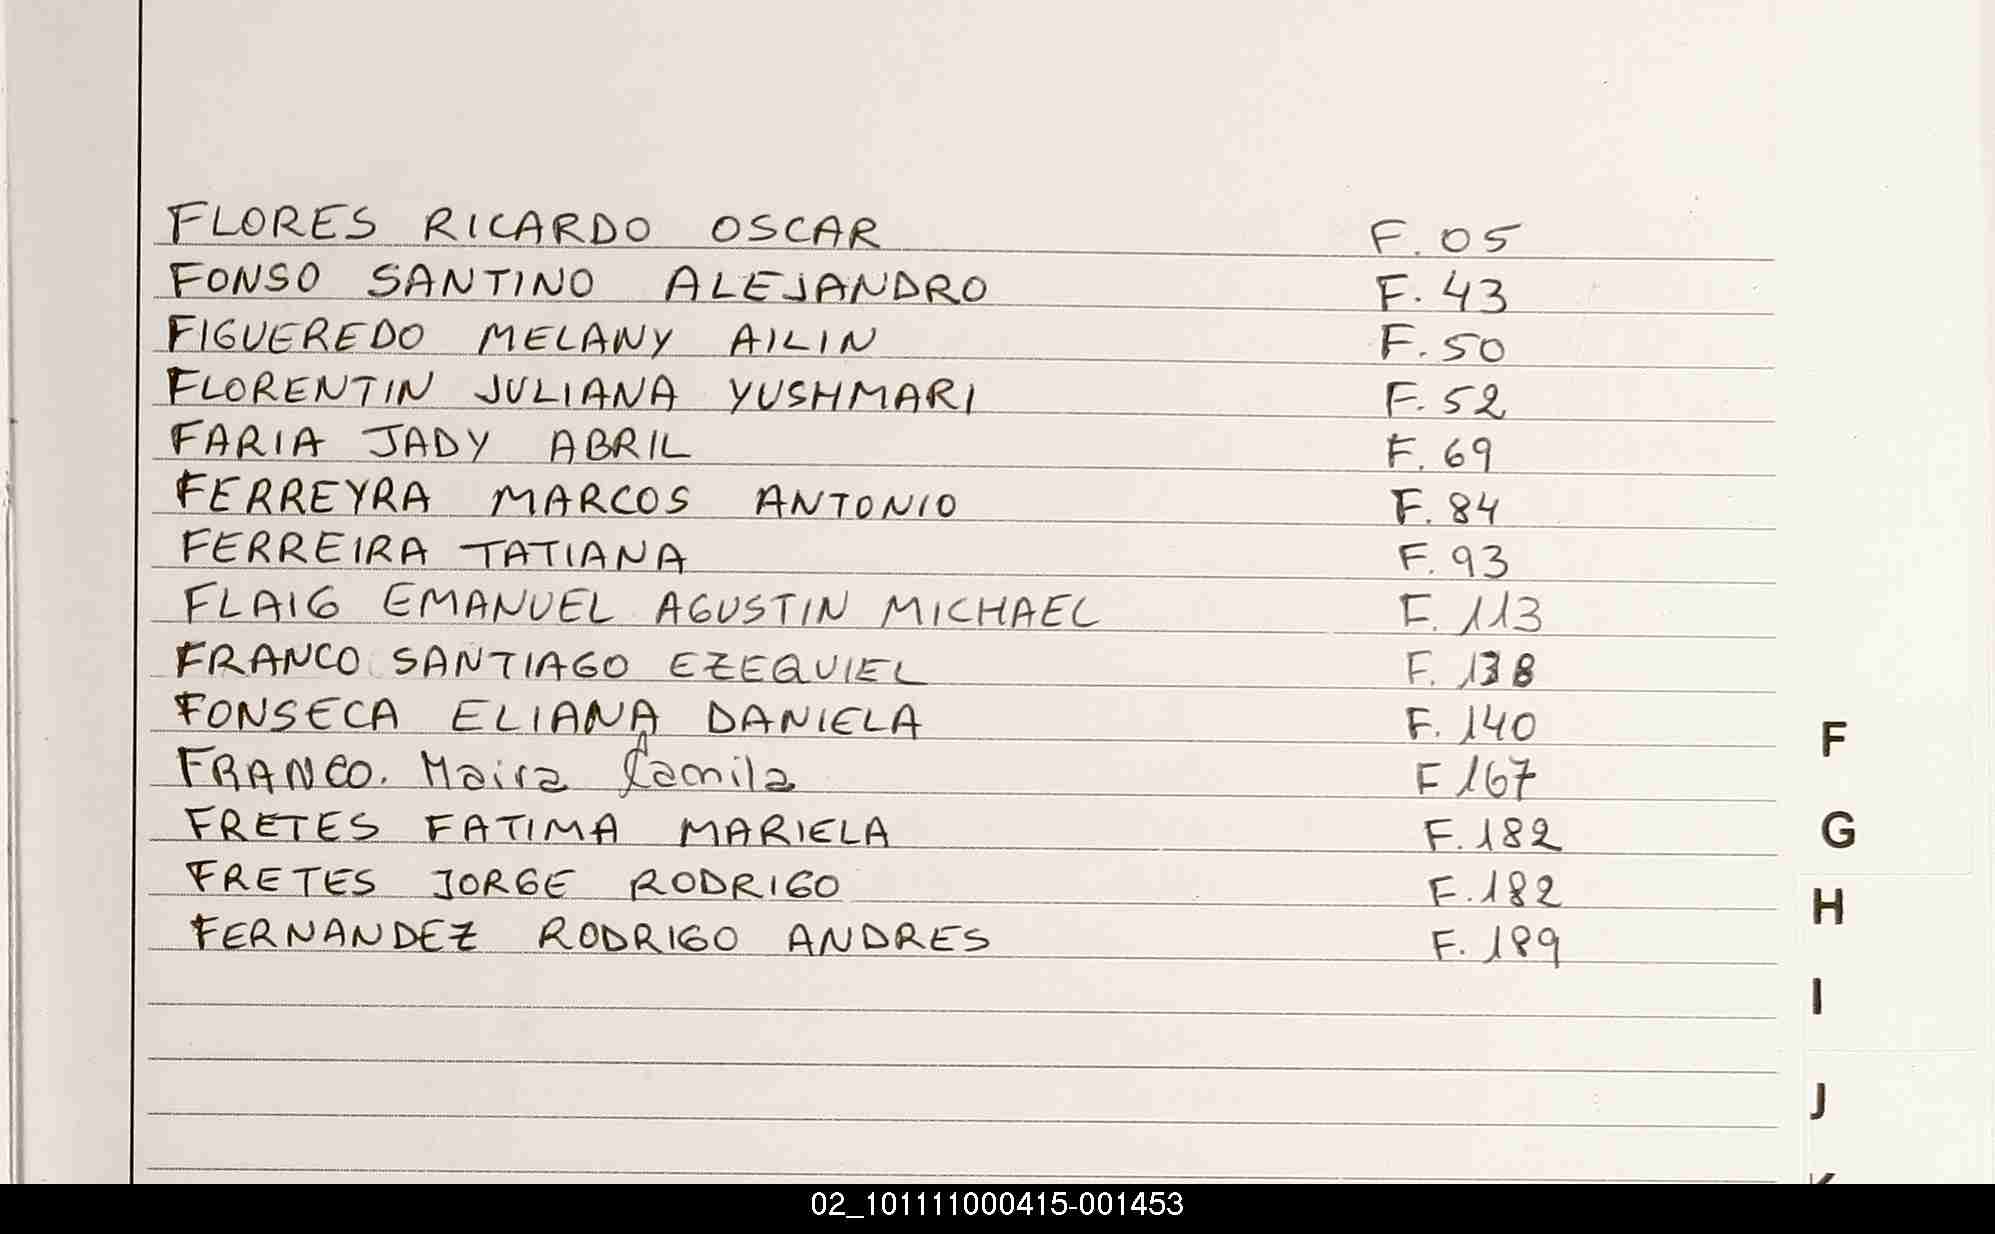 FLORES RICARDO OSCAR F. 05
FONSO SANTINO ALEJANDRO F. 43
FIGUEREDO MELANY AILIN F. 50
FLORENTIN JULIANA YUSHMARI F. 52
FARIA JADY ABRIL F. 69
FERREYRA MARCOS ANTONIO F. 84
FERREIRA TATIANA F. 93
FLAIG EMANUEL AGUSTIN MICHAEL F. 113
FRANCO SANTIAGO EZEQUIEL F. 138
FONSECA ELIANA DANIELA F. 140
FRANCO. Maira Camila F 167
FRETES FATIMA MARIELA F. 182
FRETES JORGE RODRIGO F. 182
FERNANDEZ RODRIGO ANDRES F. 189
F
G
H
I
J
02_101111000415-001453